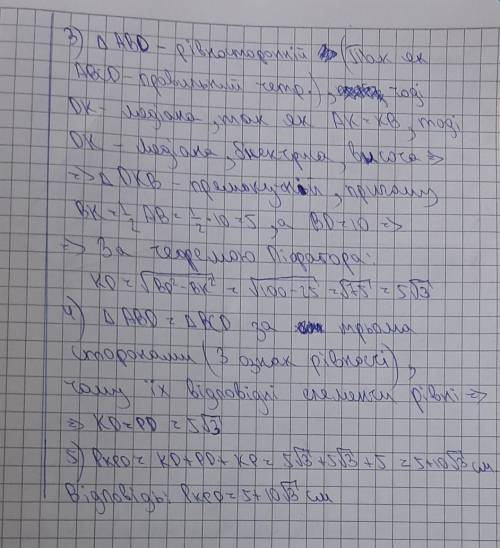 3) △ABD – рівносторонній (так як
ABCD – правильний тетр.), тоді
DK – медіана, так як AK = KB, тоді
DK – медіана, бісектриса, висота ⇒
⇒ △DKB – прямокутний, причому
BK = 1/2 AB = 1/2 · 10 = 5, а BD = 10 ⇒
⇒ За теоремою Піфагора:
KD = √(BD² – BK²) = √(100 – 25) = √75 = 5√3
4) △ABD = △BCD за трьома
сторонами (3 ознак рівності),
тому їх відповідні елементи рівні ⇒
⇒ KD = PD = 5√3
5) PKPD = KD + PD + KP = 5√3 + 5√3 + 5 = 5 + 10√3 см
Відповідь: PKPD = 5 + 10√3 см